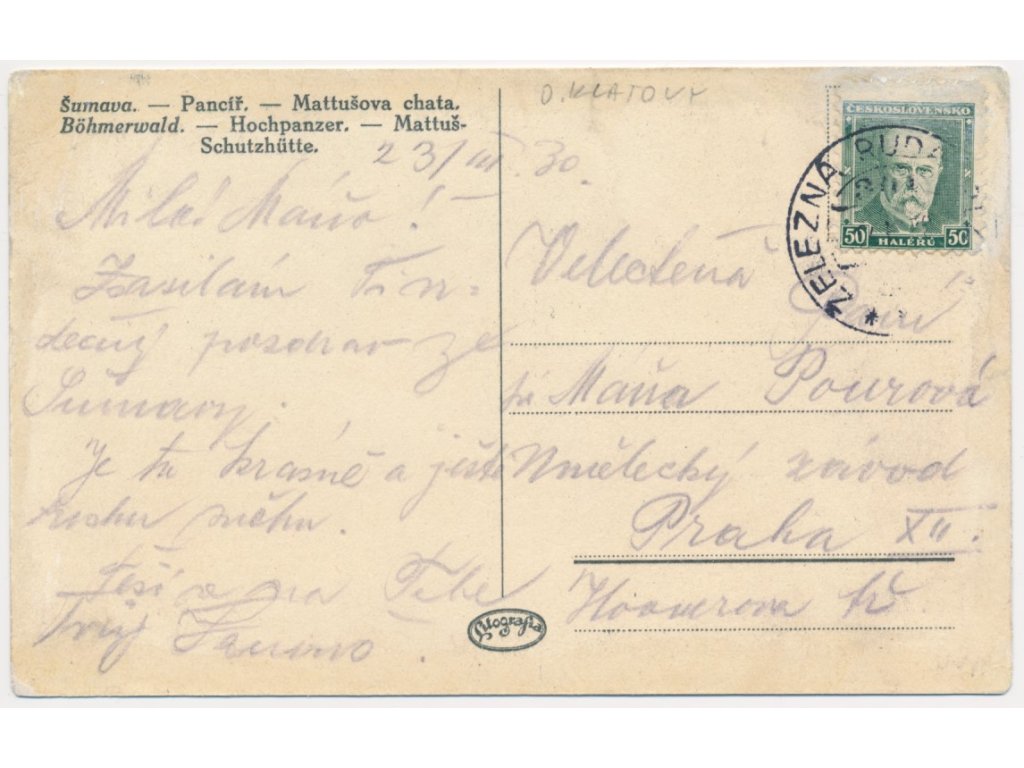 Šumava. — Pancíř. — Mattušova chata.
Böhmerwald. — Hochpanzer. — Mattuš-
Schutzhütte.
O. KLATOVY
23/III. 30.
Milá Máňo!
Zasílám
dečný pozdrav ze
Šumavy.
Je tu krásně a ještě
trochu sněhu.
Těší se na Tebe
Tvůj
ČESKOSLOVENSKO
50 HALÉŘŮ 50
ŽELEZNÁ RUDA
*
Velectěná
Paní
Máňa Pourová
Umělecký závod
Praha XII.
Hooverova tř
Litografia